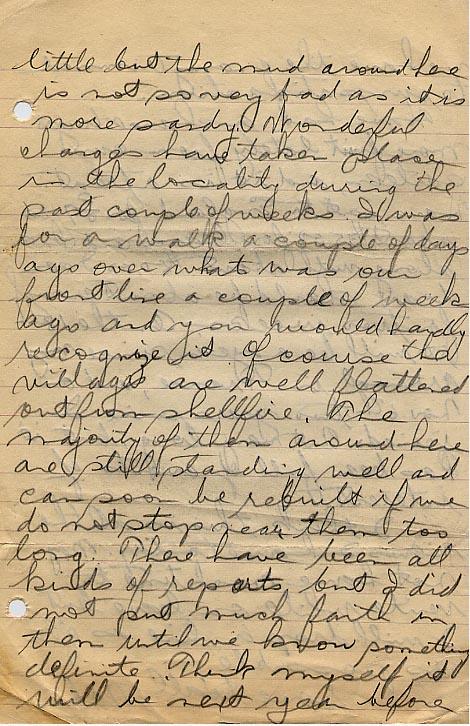 little but the mud around here
is not so very bad as it is
more sandy. Wonderful
changes have taken place
in the locality during the
past couple of weeks. I was
for a walk a couple of days
ago over what was our
front line a couple of week
ago and you would hardly
recognize it. Of course the
villages are well flattened
out from shellfire. The
majority of them around here
are still standing well and
can soon be rebuilt if we
do not stop near them too
long. There have been all
kinds of reports but I did
not put much faith in
them until we know something
definite. Think myself it
will be next year before